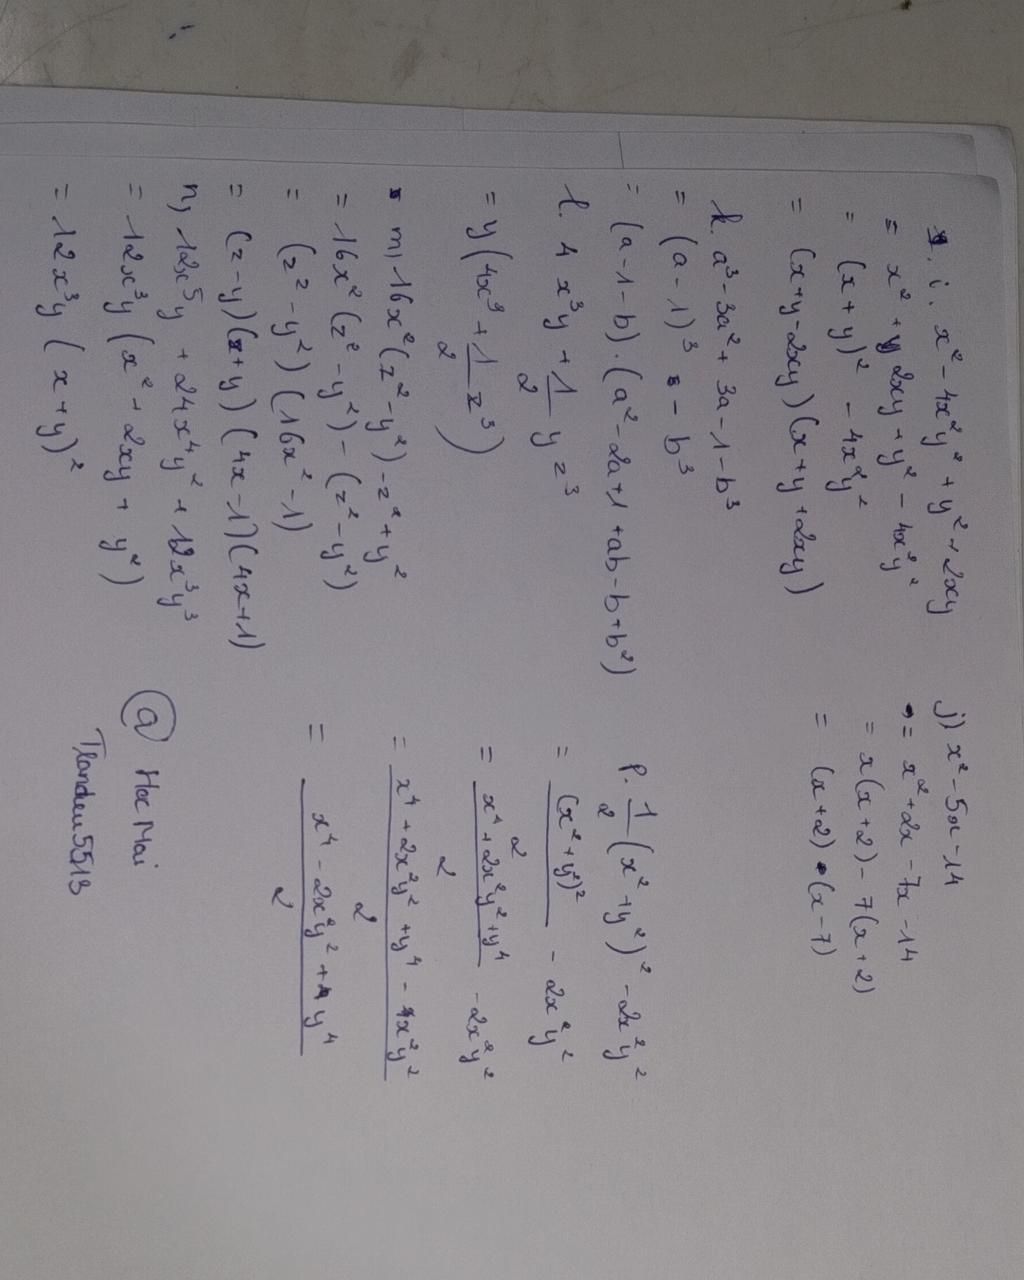 i. x² - 4x²y² + y² + 2xy
= x² + 2xy + y² - 4x²y²
= (x + y)² - 4x²y²
= (x+y-2xy)(x+y+2xy)
k. a³ - 3a² + 3a - 1 - b³
= (a - 1)³ - b³
= (a-1-b).(a²-2a+1+ab-b+b²)
l. 4x³y + 1/2 yz³
= y(4x³ + 1/2 z³)
m, 16x²(z²-y²)-z²+y²
= 16x²(z²-y²)-(z²-y²)
= (z²-y²)(16x²-1)
= (z-y)(z+y)(4x-1)(4x+1)
n, 12x⁵y + 24x⁴y² + 12x³y³
= 12x³y(x²+2xy+y²)
= 12x³y(x+y)²
j) x² - 5x - 14
= x² + 2x - 7x - 14
= x(x+2) - 7(x+2)
= (x+2).(x-7)
p. 1/2 (x²+y²)² - 2x²y²
= (x²+y²)²/2 - 2x²y²
= x⁴+2x²y²+y⁴/2 - 2x²y²
= x⁴+2x²y²+y⁴-4x²y²/2
= x⁴-2x²y²+y⁴/2
@ Hoc Mai
Tranduu5513